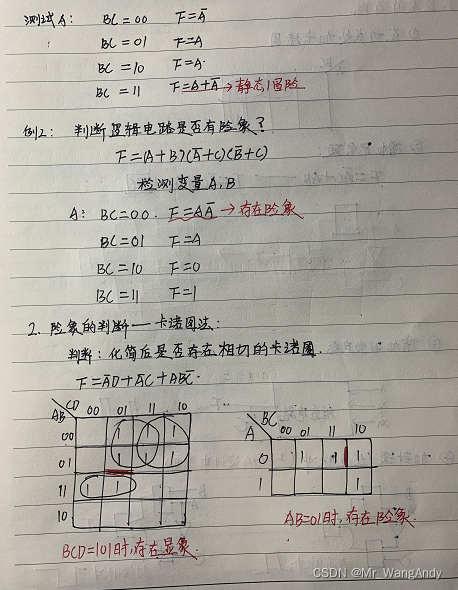 测试A: BC=00 F=A̅
BC=01 F=A
BC=10 F=A
BC=11 F=A+A̅→静态1冒险
例2: 判断逻辑电路是否有险象?
F=(A+B)(A̅+C)(B̅+C)
检测变量A,B
A: BC=00. F=AA̅→存在险象
BC=01 F=A
BC=10 F=0
BC=11 F=1
2. 险象的判断—卡诺图法:
判断:化简后是否存在相切的卡诺圈.
F=A̅D+A̅C+ABC̅.
AB CD 00 01 11 10
00 1 1 1
01 1 1 1
11 1 1
10
BCD=101时,存在显象.
A BC 00 01 11 10
0 1 1 1
1
AB=01时,存在险象.
CSDN @Mr_WangAndy